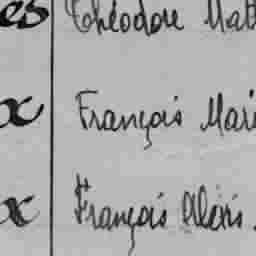 es Théodore Mat
x François Mari
x François Alexis